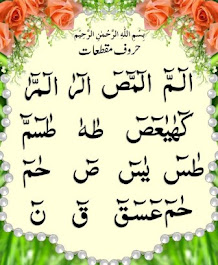 بِسْمِ اللّٰهِ الرَّحْمٰنِ الرَّحِيْمِ
حروف مقطعات
الٓمّٓ الٓمّٓصٓ الٓرٰ الٓمّٓرٰ
كٓهٰيٰعٓصٓ طٰهٰ طٰسٓمّٓ
طٰسٓ يٰسٓ صٓ حٰمٓ
حٰمٓ عٓسٓقٓ قٓ نٓ